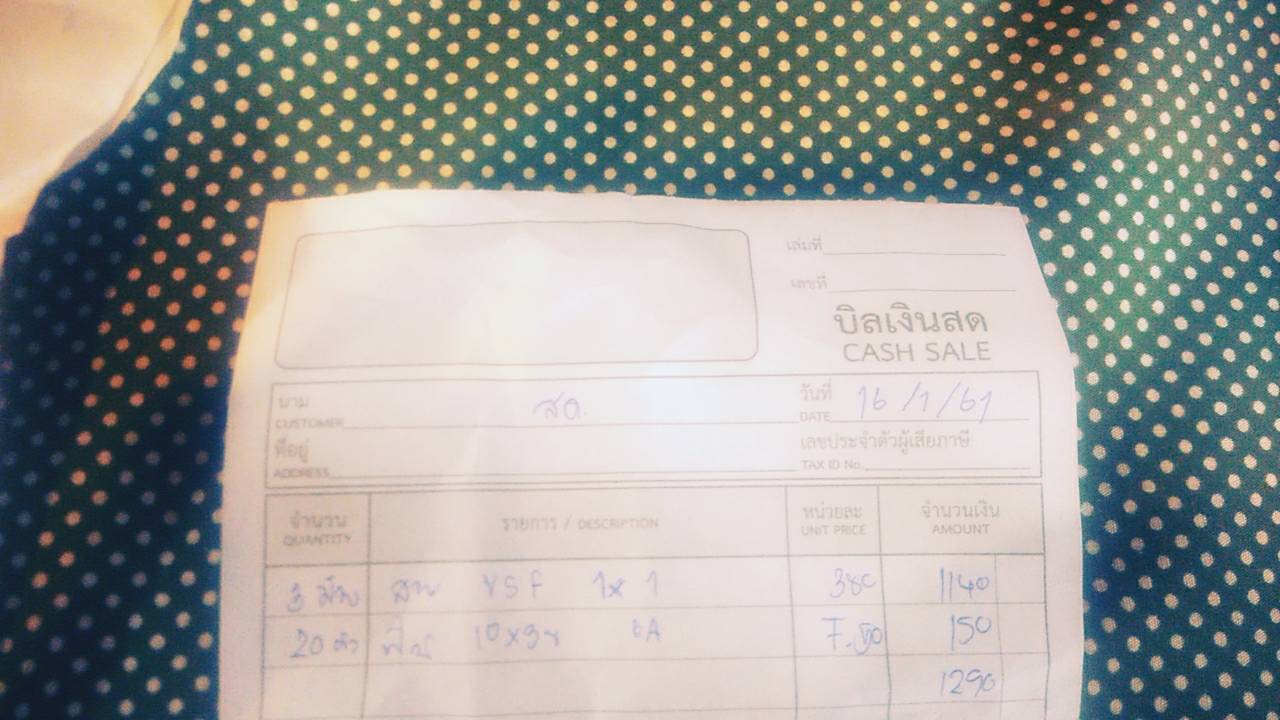 เล่มที่
เลขที่
บิลเงินสด
CASH SALE
นาม
CUSTOMER
สด.
วันที่
DATE
16/1/61
ที่อยู่
ADDRESS
เลขประจำตัวผู้เสียภาษี
TAX ID No.
จำนวน
QUANTITY
รายการ / DESCRIPTION
หน่วยละ
UNIT PRICE
จำนวนเงิน
AMOUNT
3 ม้วน สาย VSF 1x1 380 1140
20 ตัว ฟิวส์ 10x38 6A 7.50 150
1290